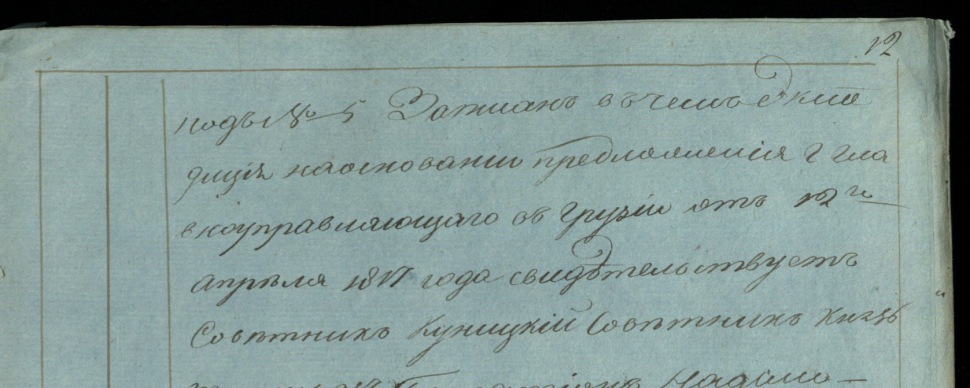 12
подъ № 5 Записанъ въ чемъ Экспе
диція наосновании предложенія Г гла
вноуправляющаго въ Грузіи отъ 12го
апреля 1817 года свидѣтельствуетъ
Совѣтникъ Куницкій Совѣтникъ Князь